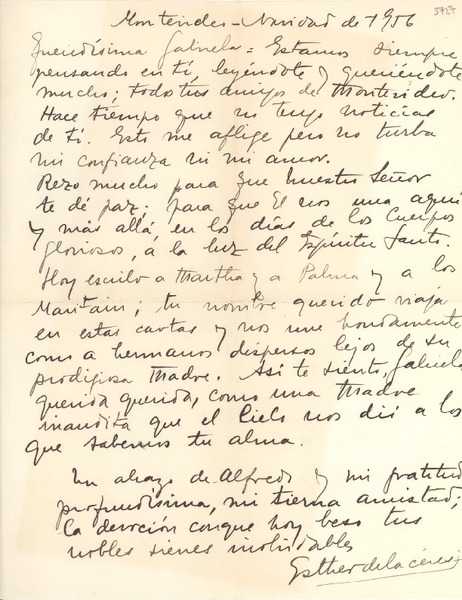 5727
Montevideo - Navidad de 1956
Queridísima Gabriela = Estamos siempre
pensando en tí, leyéndote y queriéndote
mucho; todos tus amigos de Montevideo.
Hace tiempo que no tengo noticias
de tí. Esto me aflige pero no turba
mi confianza ni mi amor.
Rezo mucho para que nuestro Señor
te dé paz; para que Él nos una aquí
y más allá, en los días de los Cuerpos
gloriosos, a la luz del Espíritu Santo.
Hoy escribo a Martha y a Palma y a los
Maritain; tu nombre querido viaja
en estas cartas y nos une hondamente
como a hermanos dispersos lejos de su
prodigiosa Madre. Así te siento, Gabriela
querida querida, como una Madre
inaudita que el Cielo nos dió a los
que sabemos tu alma.
Un abrazo de Alfredo y mi gratitud
profundísima, mi tierna amistad;
la devoción conque hoy beso tus
nobles sienes inolvidables
Esther de Cáceres